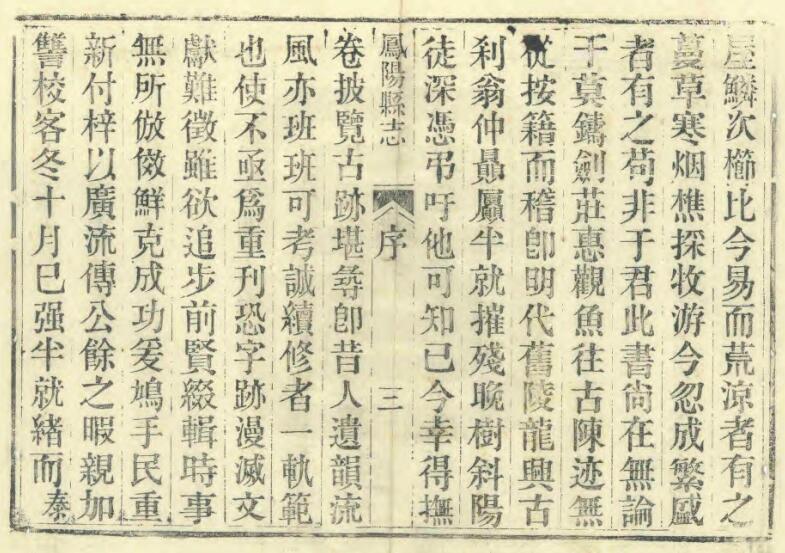 屋鱗次櫛比今易而荒凉者有之
蔓草寒烟樵採牧游今忽成繁盛
者有之苟非于君此書尙在無論
干莫鑄劍莊惠觀魚往古陳迹無
從按籍而稽卽明代舊陵龍興古
刹翁仲贔屭半就摧殘晚樹斜陽
徒深憑弔吁他可知已今幸得撫
鳳陽縣志 序 三
卷披覽古跡堪尋卽昔人遺韻流
風亦班班可考誠續修者一軌範
也使不亟爲重刊恐字跡漫滅文
獻難徵雖欲追步前賢綴輯時事
無所倣傚鮮克成功爰鳩手民重
新付梓以廣流傳公餘之暇親加
讐校客冬十月已强半就緒而奉